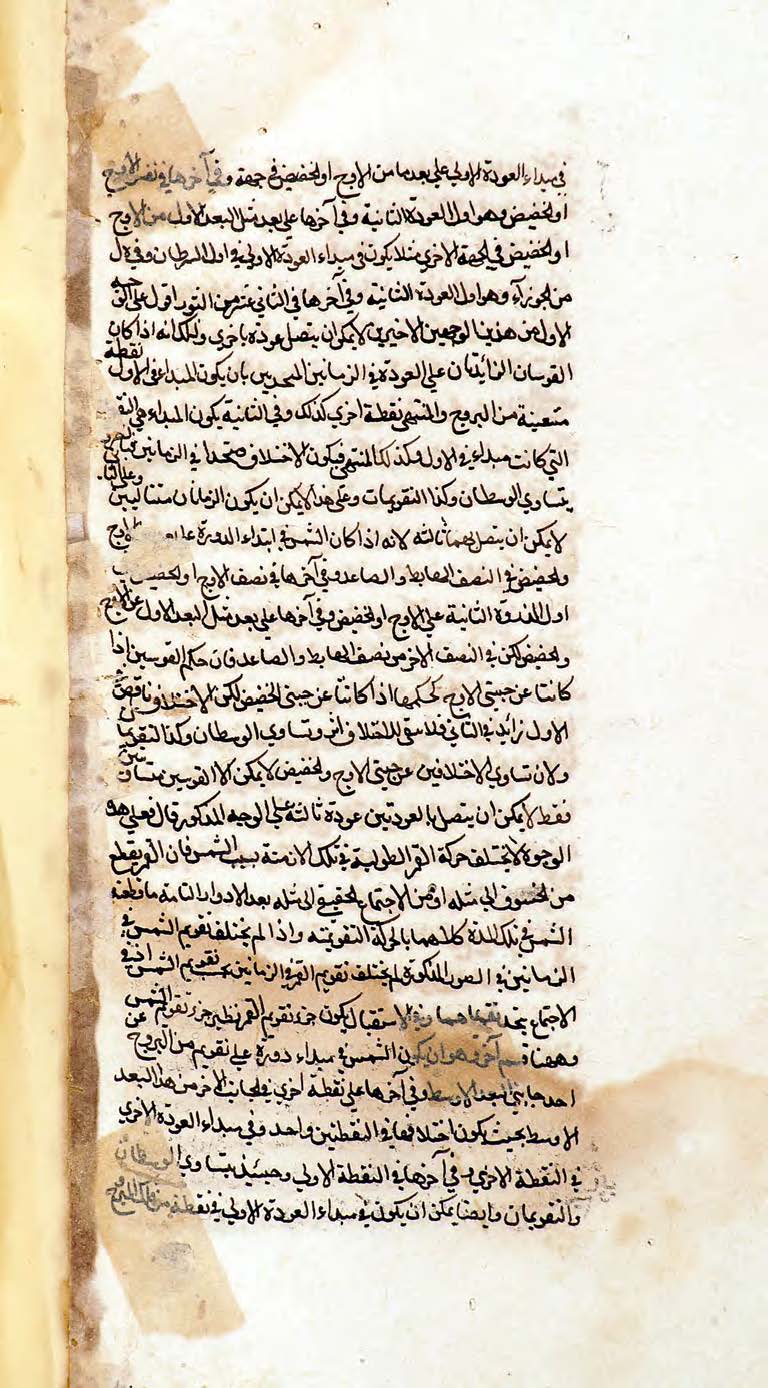 في مبداء العودة الاولي علي بعد ما من الاوج او الحضيض في جهة وفي آخرها في نفس الاوج
او الحضيض وهو اول العودة الثانية وفي آخرها علي بعد مثل البعد الاول من الاوج
او الحضيض في الجهة الاخري مثلا يكون في مبداء العودة الاولي في اول السرطان وفي
من الجوزآء وهو اول العودة الثانية وفي آخرها في الثاني عشر من الثور اقول علي الوجه
الاول من هذين الوجهين الاخيرين لا يمكن ان يتصل عودة باخري وذلك انه اذا كان
القوسان الزائدتان علي العودة في الزمانين المتحدين بان يكون المبداء في الاول نقطة
متعينة من البروج والمنتهي نقطة اخري كذلك وفي الثانية يكون المبداء هي النقطة
التي كانت مبداء في الاول وكذلك المنتهي فيكون الاختلاف متحدا في الزمانين
يتساوي الوسطان وكذا التقويمات وعلي هذا لا يمكن ان يكون الزمانان متتاليين وعلي الثاني
لا يمكن ان يتصل بهما ثالثه لانه اذا كان الشمس في ابتداء الدورة الاوج
والحضيض في النصف الهابط والصاعد وفي آخرها في نصف الاوج او الحضيض
اول الدورة الثانية علي الاوج او الحضيض وفي آخرها علي بعد مثل البعد الاول عن الاوج
والحضيض لكن في النصف الاخر من نصف الهابط والصاعد فان حكم القوسين اذا
كانتا عن جنبتي الاوج كحكمها اذا كانتا عن جنبتي الحضيض لكن الاختلاف ناقص في
الاول زائد في الثاني فلا يبقي للاختلاف اثر وتساوي الوسطان وكذا التقويمان
ولان تساوي الاختلافين عن جنبتي الاوج والحضيض لا يمكن الا القوسين متساويتين
فقط لا يمكن ان يتصل بالعودتين عودة ثالثة علي الوجه المذكور قال فعلي هذه
الوجوه لا تختلف حركة القمر الطولية في تلك الازمنة بسبب الشمس فان القمر يقطع
من الخسوف الي مثله او من الاجتماع الحقيقي الي مثله بعد الادوار التامة ما قطعته
الشمس في تلك المدة كلاهما بالحركة التقويمية واذا لم يختلف تقويم الشمس في
الزمانين في الصور المذكورة لم يختلف تقويم القمر في الزمانين بحسب تقويم الشمس اذ في
الاجتماع يتحد تقويماهما وفي الاستقبال يكون جزء تقويم القمر نظير جزء تقويم الشمس
وههنا قسم آخر وهو ان يكون الشمس في مبداء دورة علي تقويم من البروج عن
احد جانبي البعد الاوسط وفي آخرها علي نقطة اخري في الجانب الاخر من هذا البعد
الاوسط بحيث يكون اختلافها في النقطتين واحد وفي مبداء العودة الاخري
في النقطة الاخري وفي آخرها في النقطة الاولي وحينئذ يتساوي الوسطان
والتقويمان وايضا يمكن ان يكون في مبداء العودة الاولي في نقطة من فلك البروج